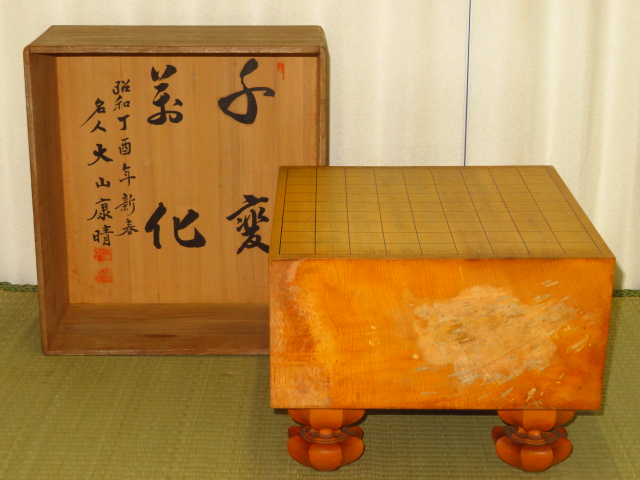 千変
萬化
昭和丁酉年新春
名人大山康晴